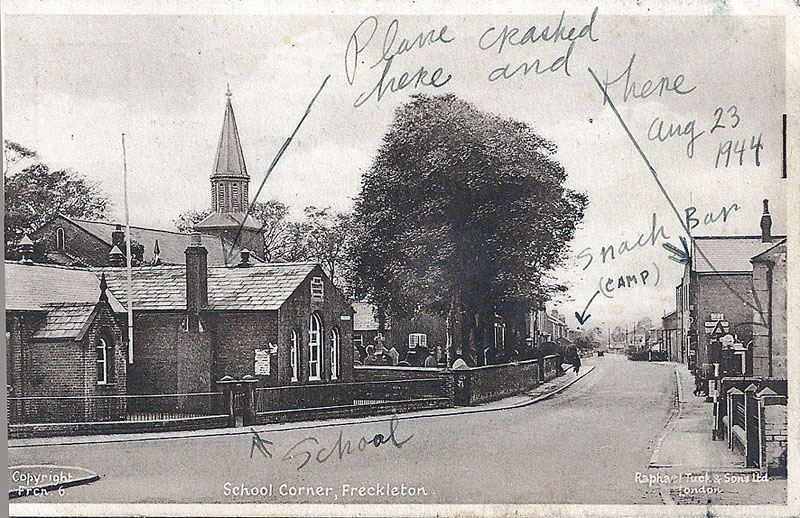 Plane crashed
here and there
Aug 23
1944
Snack Bar
(CAMP)
School
Copyright
Frcn 6.
School Corner, Freckleton.
Raphael Tuck & Sons Ltd
London